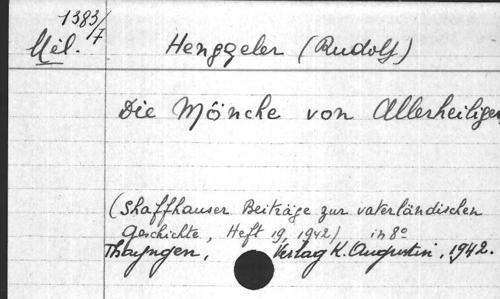 1383/7
Mél. Henggeler (Rudolf)
Die Mönche von Allerheiligen
(Shaffhauser Beiträge zur vaterländischen
Geschichte, Heft 19, 1942) in 8°
Thayngen, Verlag K. Augustin, 1942.